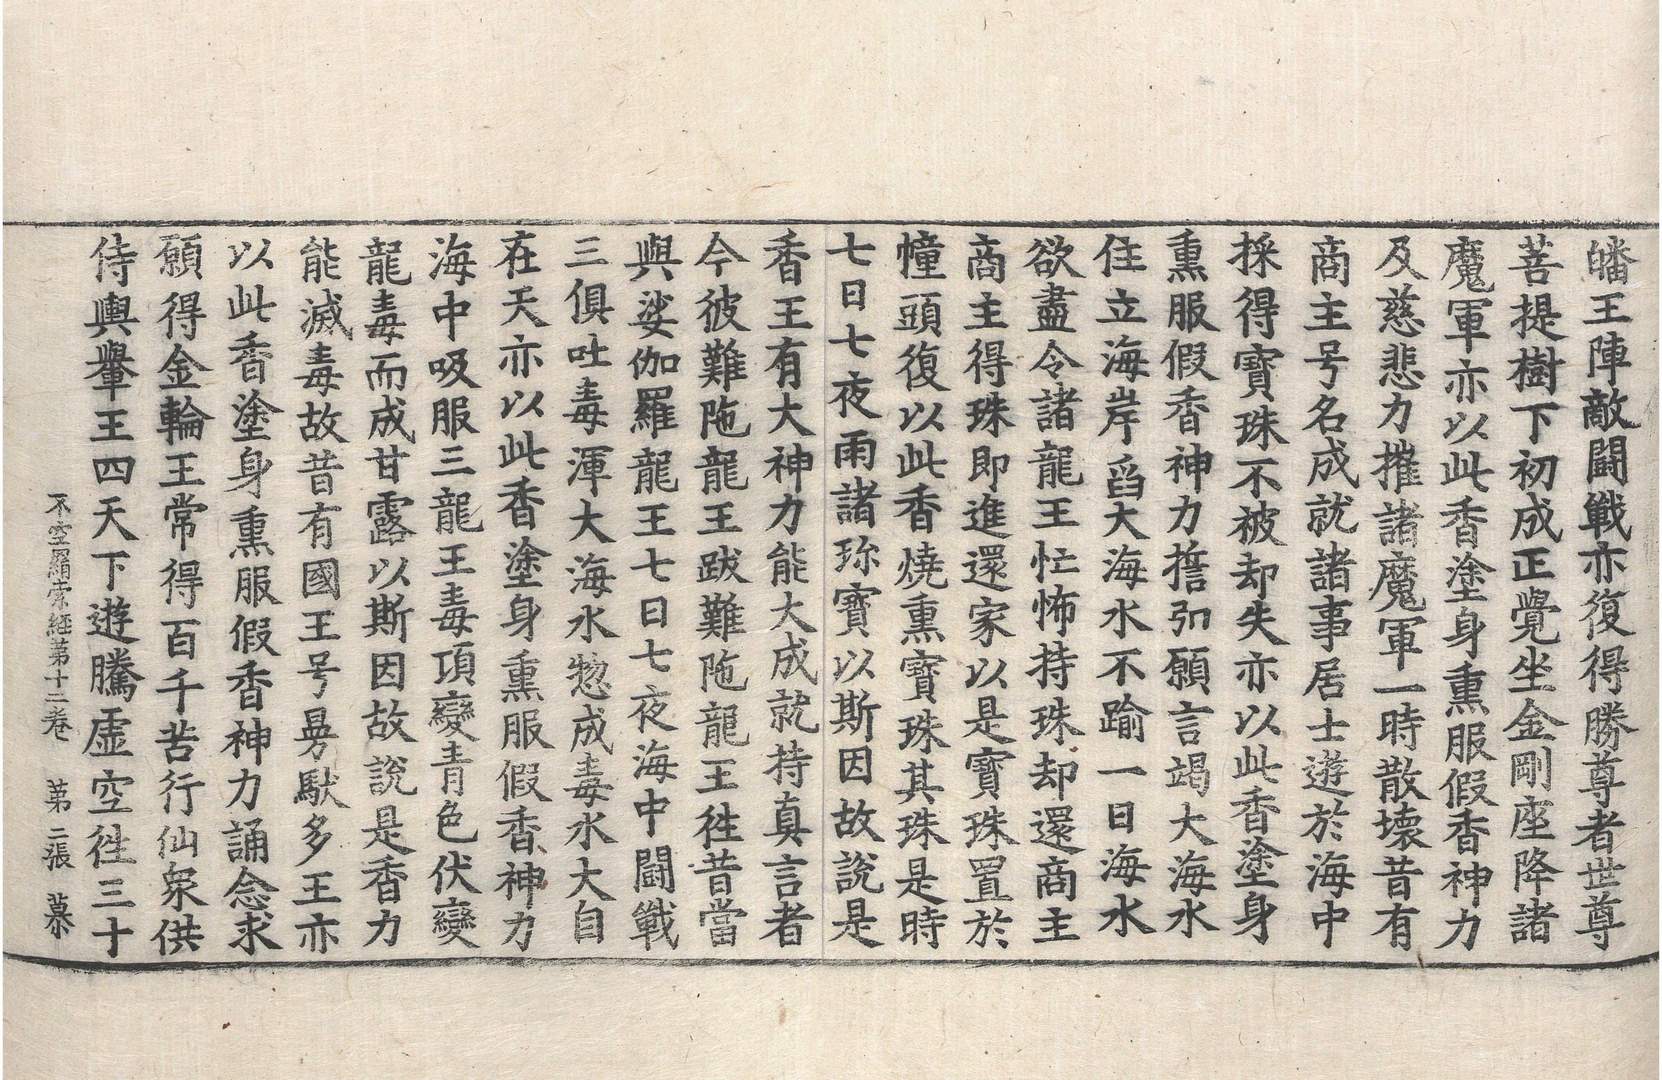 皤王陣敵鬪戰亦復得勝尊者世尊
菩提樹下初成正覺坐金剛座降諸
魔軍亦以此香塗身熏服假香神力
及慈悲力摧諸魔軍一時散壞昔有
商主号名成就諸事居士遊於海中
採得寶珠不被却失亦以此香塗身
熏服假香神力擔弶願言竭大海水
住立海岸舀大海水不踰一日海水
欲盡令諸龍王忙怖持珠却還商主
商主得珠即進還家以是寶珠置於
幢頭復以此香燒熏寶珠其珠是時
七日七夜雨諸珎寶以斯因故說是
香王有大神力能大成就持真言者
今彼難陁龍王跋難陁龍王徃昔當
與娑伽羅龍王七日七夜海中鬪戰
三俱吐毒渾大海水惣成毒水大自
在天亦以此香塗身熏服假香神力
海中吸服三龍王毒項變青色伏變
龍毒而成甘露以斯因故說是香力
能滅毒故昔有國王号勇䭾多王亦
以此香塗身熏服假香神力誦念求
願得金輪王常得百千苦行仙衆供
侍輿轝王四天下遊騰虛空徃三十
不空羂索經第十二卷 第二張 慕